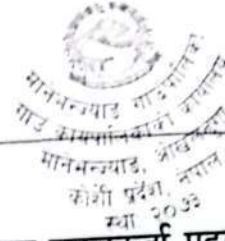 मानेभन्ज्याङ गाउँपालिका
गाउँ कार्यपालिकाको कार्यालय
मानेभन्ज्याङ, ओखलढुङ्गा
कोशी प्रदेश, नेपाल
स्था २०७३